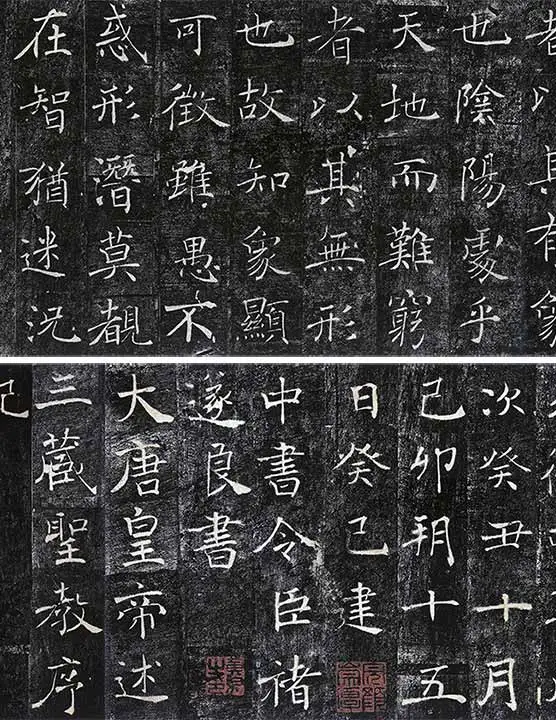 者以其有象
也陰陽處乎
天地而難窮
者以其無形
也故知象顯
可徵雖愚不
惑形潛莫覩
在智猶迷況
次癸丑十月
己卯朔十五
日癸巳建
中書令臣褚
遂良書
大唐皇帝述
三藏聖教序